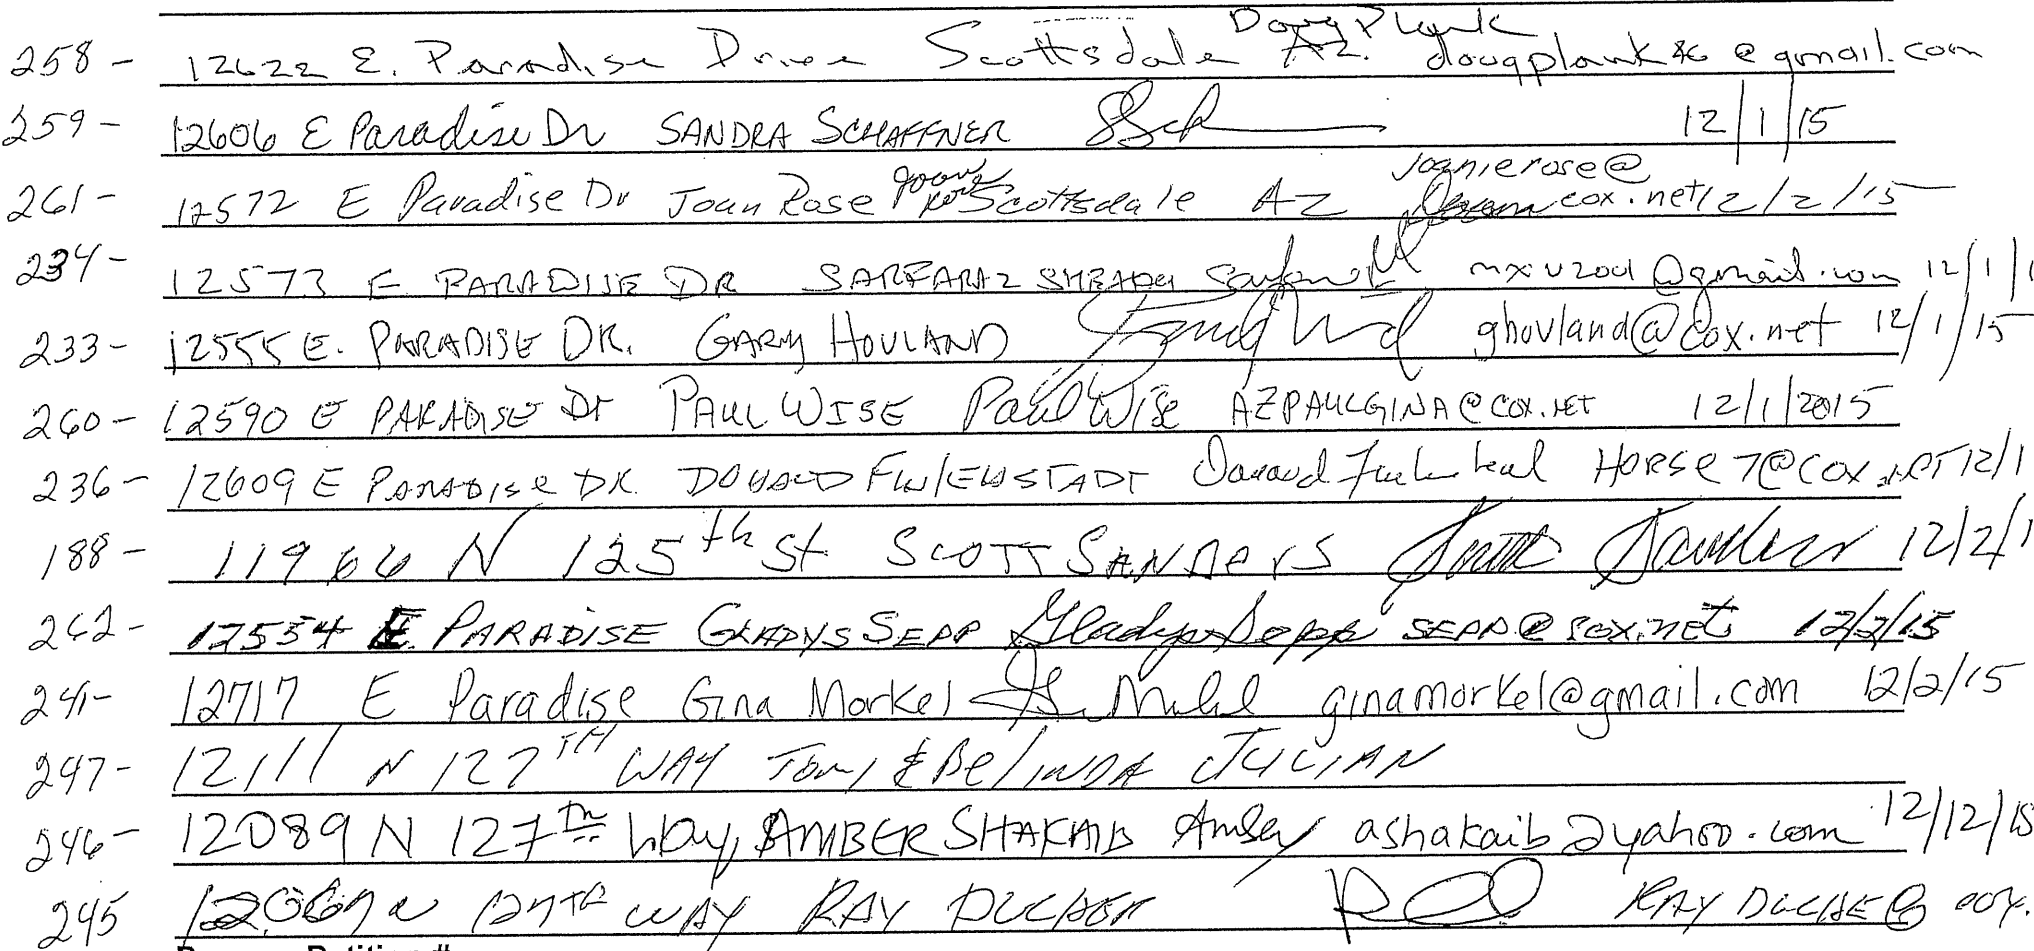 Doug Plank
258 - 12622 E. Paradise Drive Scottsdale AZ. dougplank46@gmail.com
259 - 12606 E Paradise Dr SANDRA SCHAFFNER 12/1/15
joanierose@
261 - 12572 E Paradise Dr Joan Rose Scottsdale AZ cox.net 12/2/15
234 - 12573 E PARADISE DR SARFARAZ 12/1/1
233 - 12555 E. PARADISE DR. GARY HOVLAND ghovland@cox.net 12/1/15
260 - 12590 E PARADISE Dr PAUL WISE Paul Wise AZPAULGINA@COX.NET 12/1/2015
236 - 12609 E PARADISE DR. DONALD HORSE7@COX.NET 12/1
188 - 11966 N 125th St SCOTT SANDERS Scott Sanders 12/2/1
262 - 12554 E. PARADISE GLADYS SEPP Gladys Sepp SEPP@COX.NET 12/2/15
241- 12717 E Paradise Gina Morkel ginamorkel@gmail.com 12/2/15
247- 12111 N 127TH WAY TOM & BELINDA JULIAN
246- 12089 N 127th Way, AMBER SHAKAIB Amber ashakaib@yahoo.com 12/12/15
245 12067 N 127TH WAY RAY